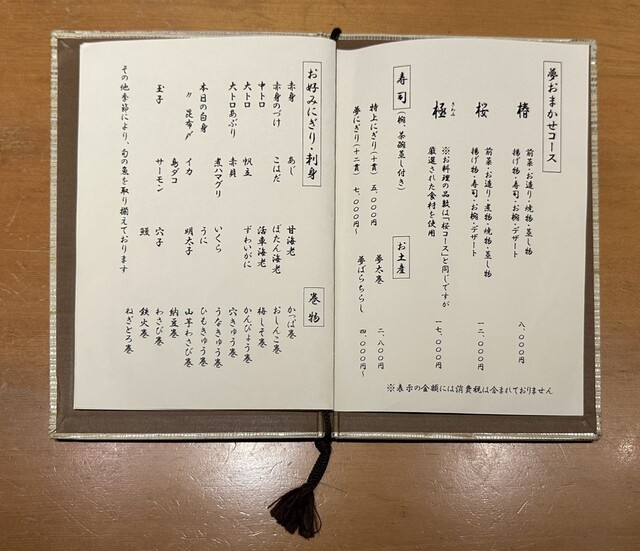 夢おまかせコース
椿
前菜・お造り・焼物・蒸し物
揚げ物・寿司・お椀・デザート
八、〇〇〇円
桜
前菜・お造り・煮物・焼物・蒸し物
揚げ物・寿司・お椀・デザート
一二、〇〇〇円
極
きわみ
※お料理の品数は「桜コース」と同じですが
厳選された食材を使用
一七、〇〇〇円
寿司
（椀、茶碗蒸し付き）
特上にぎり（十貫）
五、〇〇〇円
夢にぎり（十二貫）
七、〇〇〇円～
お土産
夢太巻
二、八〇〇円
夢ばらちらし
四、〇〇〇円～
※表示の金額には消費税は含まれておりません
お好みにぎり・刺身
赤身
赤身のづけ
中トロ
大トロ
大トロあぶり
本日の白身
〃 昆布〆
玉子
あじ
こはだ
帆立
赤貝
煮ハマグリ
イカ
島ダコ
サーモン
甘海老
ぼたん海老
活車海老
ずわいがに
いくら
うに
明太子
穴子
鰻
その他季節により、旬の魚を取り揃えております
巻物
かっぱ巻
おしんこ巻
梅しそ巻
かんぴょう巻
穴きゅう巻
うなきゅう巻
ひもきゅう巻
山芋わさび巻
納豆巻
わさび巻
鉄火巻
ねぎとろ巻